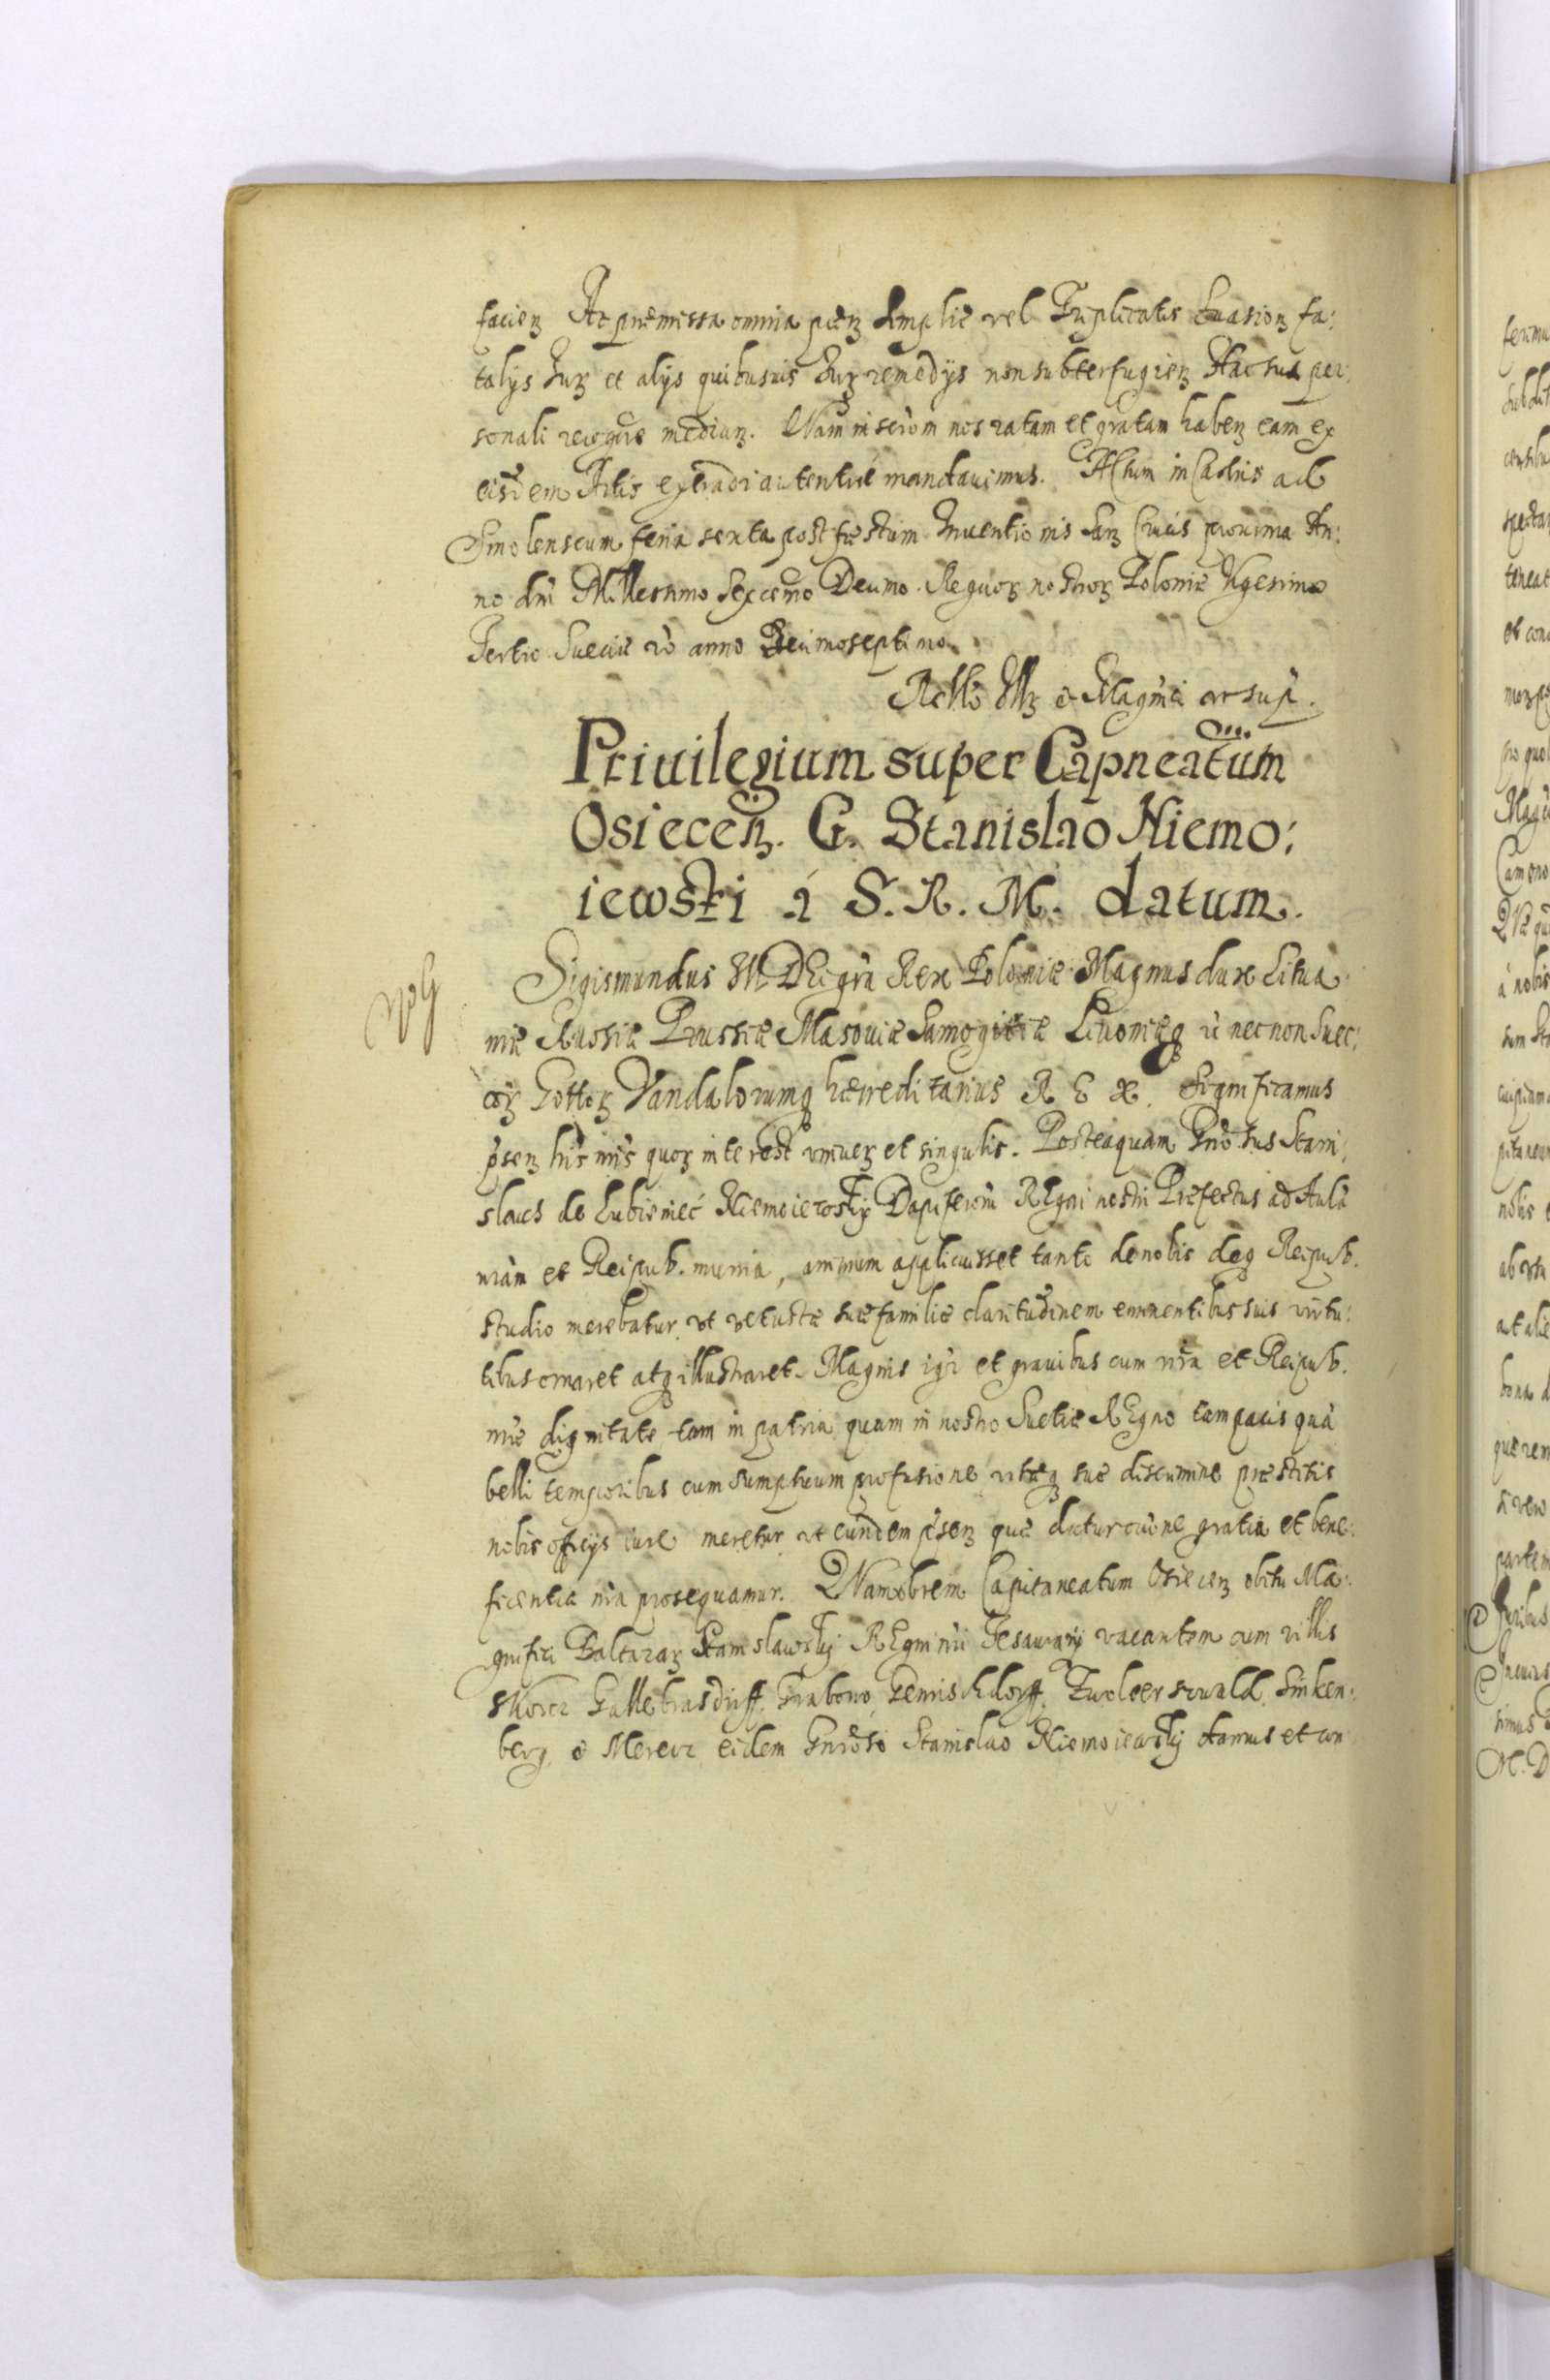 facien Ac præmissa omnia pœn simplic vel Triplicatis Euasion fa:
talys Iur et alys quibusuis Iur remedys non subterfugien Hac sua per
sonali recogne median. Quam inscrom nos ratam et gratam haben eam ex
eisdem Actis extradi autentice mandauimus. Actum in Castris ad
Smolenscum feria sexta post festum Inuentionis San Crucis proxima An:
no dni Millesimo Sexcemo Decimo. Regnor nostror Poloniæ Vigesimo
Tertio Sueciæ vo anno Decimoseptimo.
Rello Ill & Magnci vt sup.
Priuilegium super Capneatum
Osiecen. G. Stanislao Niemo:
iewski á S. R. M. datum.
Sigismundus III DEi gra Rex Poloniæ Magnus dux Litua
niæ Russiæ Prussiæ Masouiæ Samogitiæ Liuoniæq nec non Suec:
or Gottor Vandalorumq hæreditarius REX. Significamus
psen lris nris quor interest vniuer et singulis. Posteaquam Gnosus Stani:
slaus de Lubieniec Niemoiewsky Dapiferom REgni nostri Præfectus ad Aulā
nram et Reipub. munia, animum applicuisset tanto de nobis deq Reipub.
studio merebatur vt vetustæ suæ familiæ claritudinem eminentibus suis virtu:
tibus ornaret atq illustraret. Magnis igr et grauibus cum nra et Reipub.
nræ dignitate tam in patria quam in nostro Suetiæ REgno tam pacis quā
belli temporibus cum sumptuum profusione vitæq suæ discrimine præstitis
nobis officys iure meretur vt eundem psen quæ dictur gratia et bene:
ficentia nra prosequamur. Quamobrem Capitaneatum Osiecen obitu Ma:
gnifici Baltazar Stanislawsky REgni nri Tesaurary vacantem cum villis
Skorcz Gallebrasdorff, Grabowo, Gemischdorff, Fwoleerswald, Sinken:
berg, & Mererz eidem Gnroso Stanislao Niemoiewsky damus et con
NoG